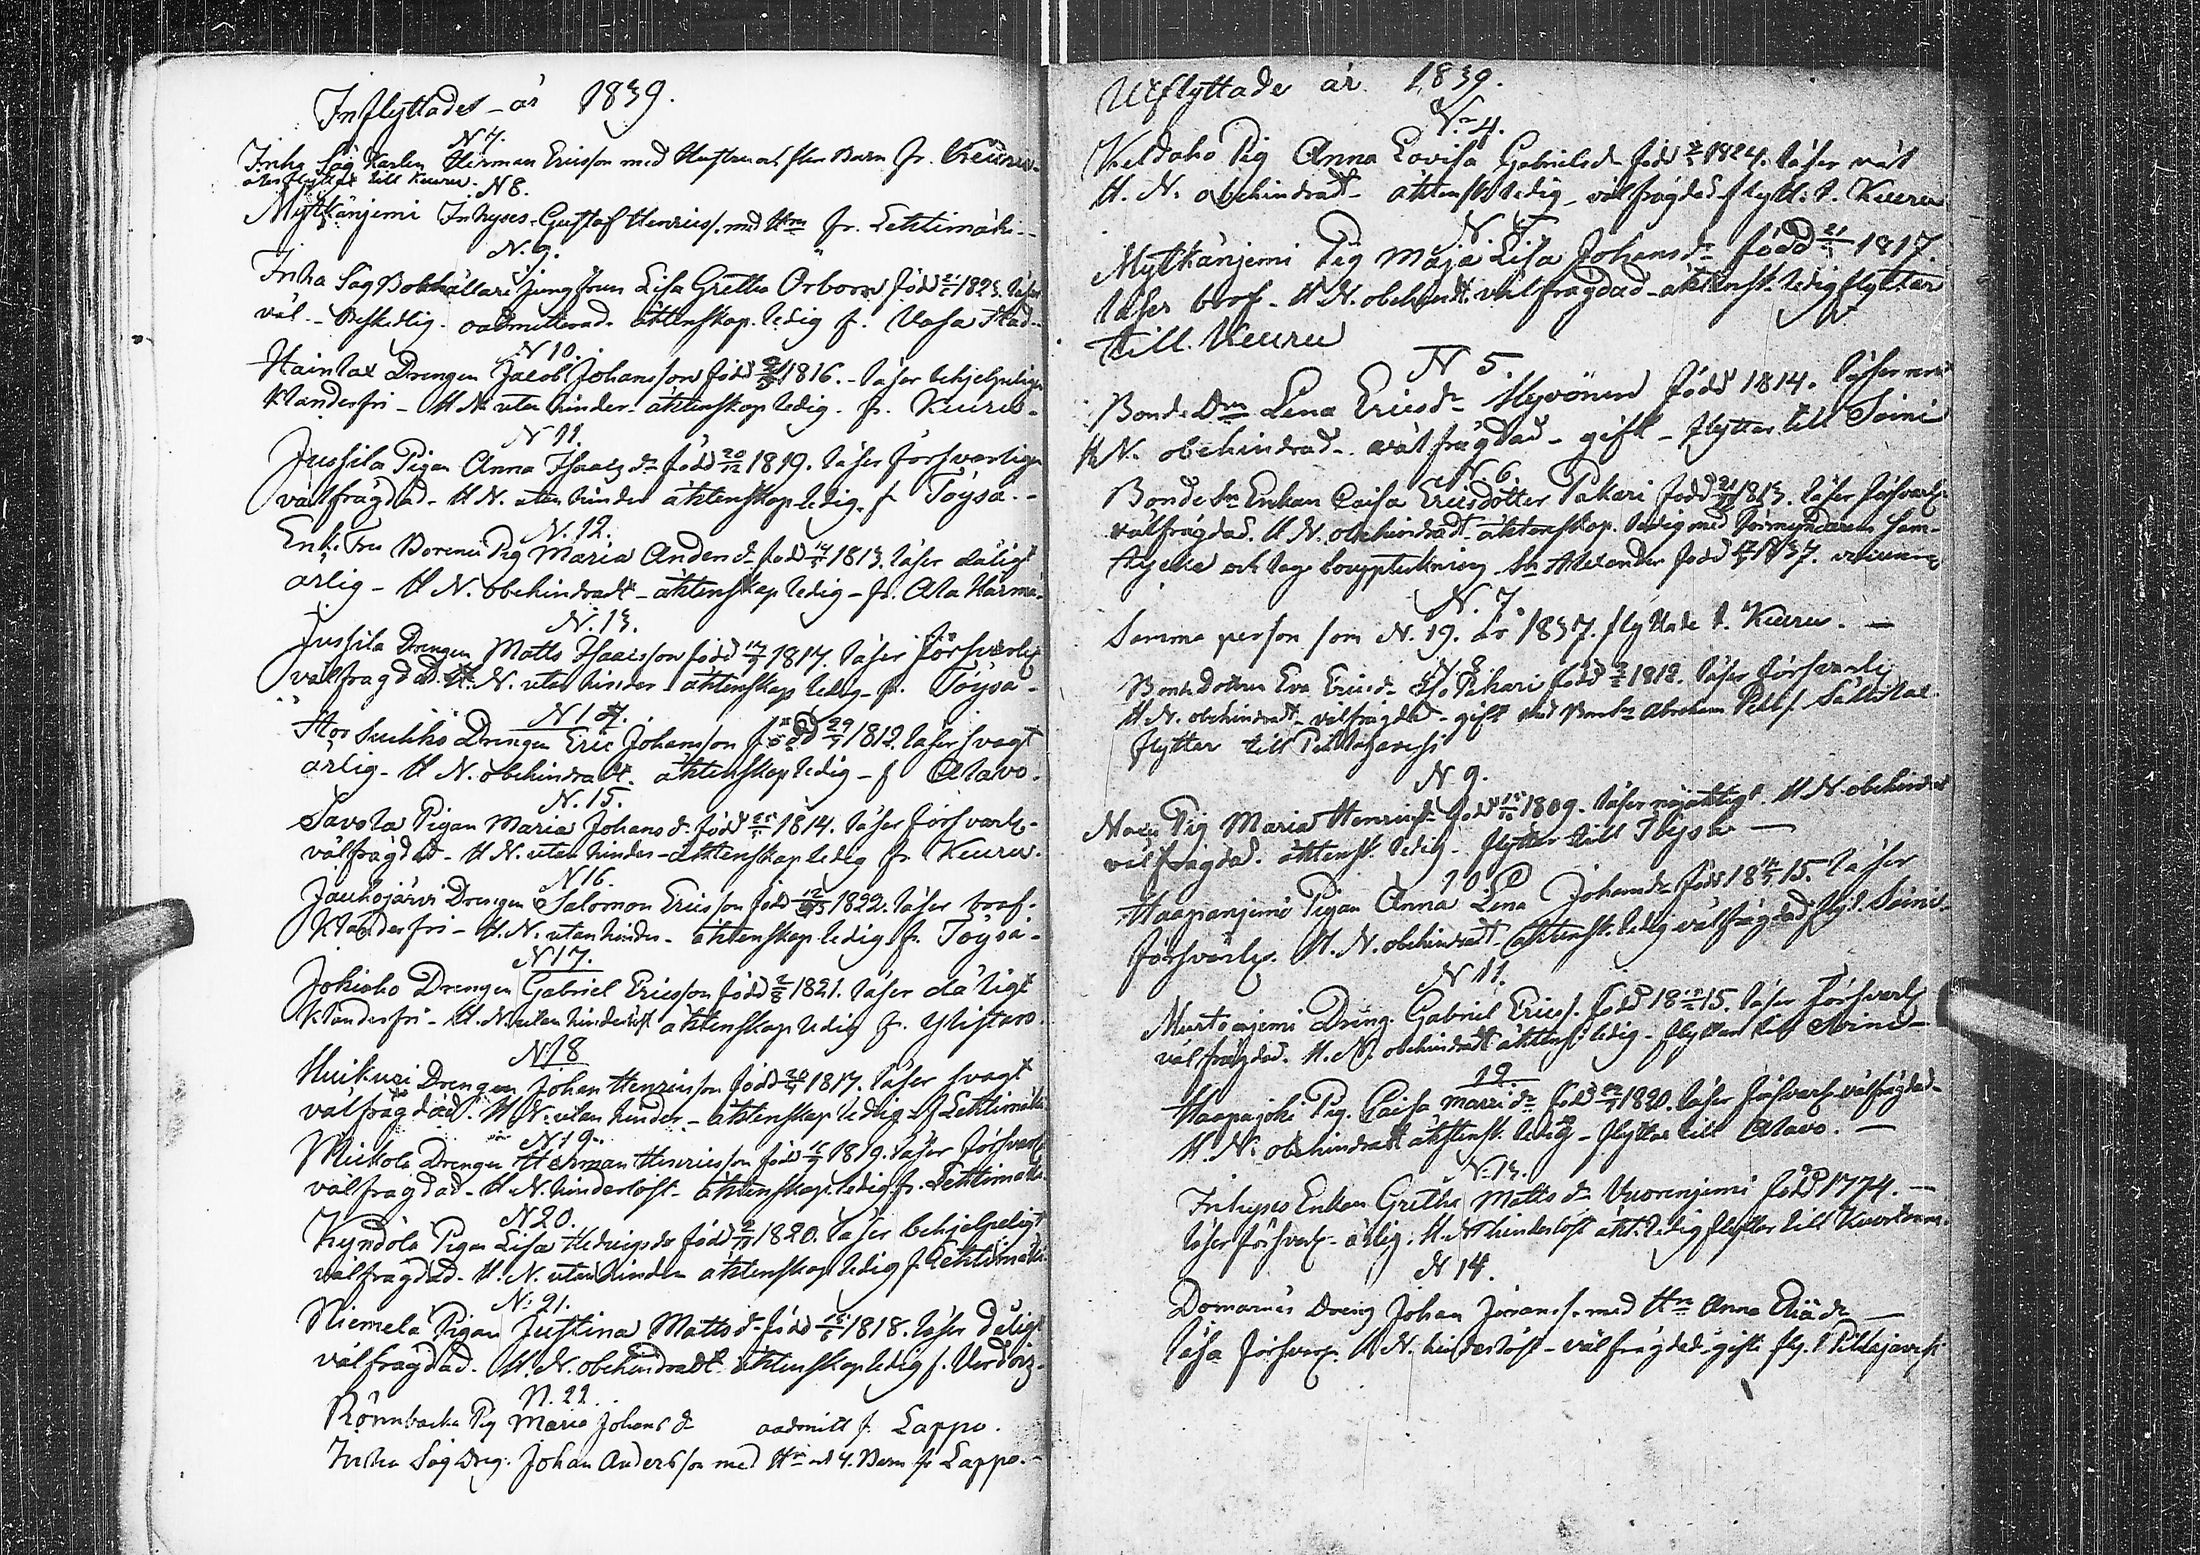 Inflyttades år 1839.
N 7.
Inha Såg Karlen Herman Ericsson med Hustru och fler Barn fr. Keuru.
återflyttat till Keuru.
N 8.
Mytkänjemi Inhyses Gustaf Henricss. med Hru fr. Lehtimäki.
N. 9.
Inha Såg Bokhållare Jungfrun Lisa Gretha Orborn född 1823. läser
väl - Beskedlig. oadmitterad. äktenskap. ledig f. Vasa Stad.
N 10.
Haintax Drengen Jacob Johansson född 1816. - läser behjelpeligen
klanderfri - H N. utan hinder - äktenskap ledig. fr. Keuru.
N 11.
Jussila Pigan Anna Isaacs dr född 20/12 1819. läser försvarligen
välfrägdad. H N. utan hinder äktenskap ledig. f Töysä.
N. 12.
Enk. Fru Pig Maria Anders dr född 1813. läser dåligt
ärlig - H N. obehindradt - äktenskap ledig - fr. Ala Härmä.
N. 13.
Jussila Drengen Matts Isaacsson född 1817. läser försvarl.
välfragdad. H. N. utan hinder - äktenskap ledig - fr. Töysä -
N 14.
Drengen Eric Johansson född 29/7 1812. läser svagt
ärlig - H N. obehindradt. äktenskap ledig - f Alavo.
N. 15.
Savola Pigan Maria Johans dr född 1814. läser försvarl.
välfrägdad - H N. utan hinder - äktenskap ledig fr. Keuru.
N 16.
Jauhojärvi Drengen Salomon Ericsson född 1822. läser braf.
Klanderfri - H. N. utan hinder - äktenskap ledig fr. Töysä -
N 17.
Jokioho Drengen Gabriel Ericsson född 2/8 1821. läser dåligt
klanderfri - H. N. utan hinder äktenskap ledig fr. Ylistaro.
N. 18
Huikuri Drengen Johan Henricsson född 1817. läser svagt
välfrägdad. H. N. utan hinder - äktenskap ledig f Lehtimäki
N 19.
Mickola Drengen Herman Henricsson född 1819. läser försvarl.
välfragdad - H N. hinderlöst - äktenskap. ledig fr. Lehtimäki
N 20.
Kyndölä Pigan Lisa Hedvigs dr född 1820. läser behjelpeligt
välfrägdad. H. N. utan hinder äktenskap ledig f. Lehtimäki
N. 21.
Niemelä Pigan Justina Matts dr född 1818. läser dåligt
välfrägdad. H. N. obehindradt. äktenskap ledig f.
N. 22.
Rönnbacka Pig Maria Johans dr oadmitt f. Lappo.
Inha Såg Dreg. Johan Andersson med Hru och 4. Barn fr Lappo.
Utflyttade år 1839.
N. 4.
Keldoho Pig Anna Lovisa Gabrielsd. född 1824. läser väl
H. N. obehindradt - äktensk. ledig - välfrägdad flytt. t. Keuru
N. 4
Mytkänjemi Pig Maja Lisa Johans dr född 21 1817.
läser braf - H N. obehindt. välfrägdad - äktensk. ledig flyttar
till Keuru
N 5.
Bonde Drn Lena Erics dr Hyvönen född 1814. läser
H N. obehindrad - välfrägdad - gift - flyttar till Soini
N. 6.
Bonde Sn Enkan Caisa Ericsdotter Pakari född 1813. läser försvarl.
välfrägdad. H N. obehindradt - äktenskap. ledig med förmyndarens sam-
tycke och laga bouppteckning. Sn Alexander född 1837.
N. 7.
Samma person som N. 19. år 1837. flyttade t. Keuru. -
N. 8
Bonde Dottren Eva Erics dr Pakari född 1812. läser försvarl.
H N. obehindradt - välfrägdad - gift med Bonde Abraham
flyttar till Pihlajavesi
N 9.
Pig Maria Henrics dr född 1809. läser nöjaktigt. H N. obehindrad
välfrägdad. äktensk. ledig - flyttar till Töysä -
10
Haapanjemi Pigan Anna Lena Johans dr född 1815. läser
försvarl. H. N. obehindradt - äktensk. ledig välfrägdad flyt. Soini.
N 11.
Murtonjemi Dreng Gabriel Ericss. född 1815. läser försvarl
välfrägdad. H. N. obehindradt äktensk. ledig - flyttar till Soini -
12.
Haapajoki Pig. Caisa dr född 1820. läser försvarl. välfrägdad.
H. N. obehindradt äktensk. ledig - flyttar till Alavo. -
N. 13.
Inhyses Enkan Gretha Matts dr Vuorenjemi född 1774. -
läser försvarl. ärlig. H. N. hinderlöst äkt. ledig flyttar till
N 14.
Domarnäs Dreng Johan Johanss. med Hru Anna Eliä dr -
läsa försvarl. H N. hinderlöst - välfrägdad - gifte fly. t Pihlajavesi